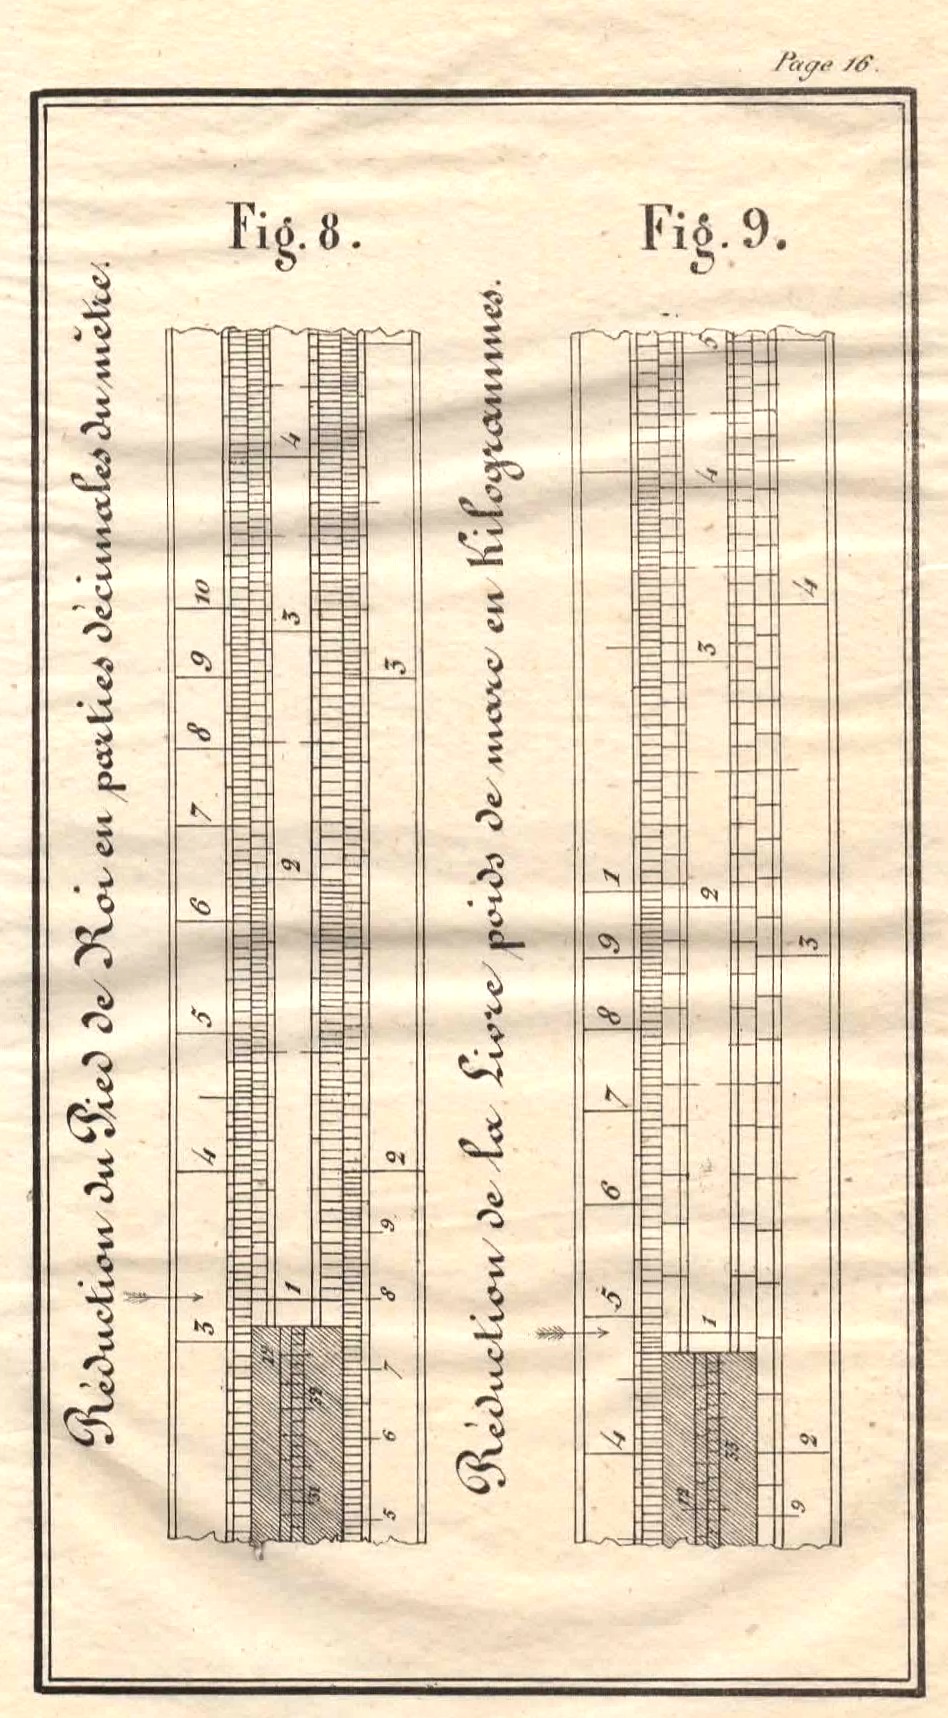 Page 16.
Fig. 8.
Réduction du Pied de Roi en parties décimales du mètre.
3 4 5 6 7 8 9 10
1 2 3 4
5 6 7 8 9 2 3
31 32
Fig. 9.
Réduction de la Livre poids de marc en Kilogrammes.
4 5 6 7 8 9 1
1 2 3 4 5
9 2 3 4
12 33